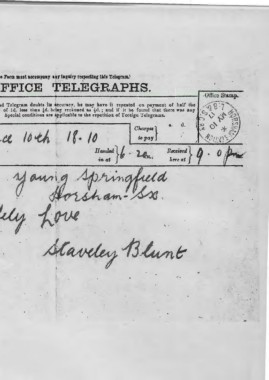 e Form must accompany any inquiry respecting this Telegram.
OFFICE TELEGRAPHS.
Office Stamp.
ed Telegram doubts its accuracy, he may have it repeated on payment of half the
of 1d. less than ½d. being reckoned as ½d.; and if it be found that there was any
Special conditions are applicable to the repetition of Foreign Telegrams.
10th 18.10
Charges
to pay
s. d.
Handed
in at
6.
Received
here at
9.0 pm
Young Springfield
Horsham-Sx.
ely Love
Staveley Blunt